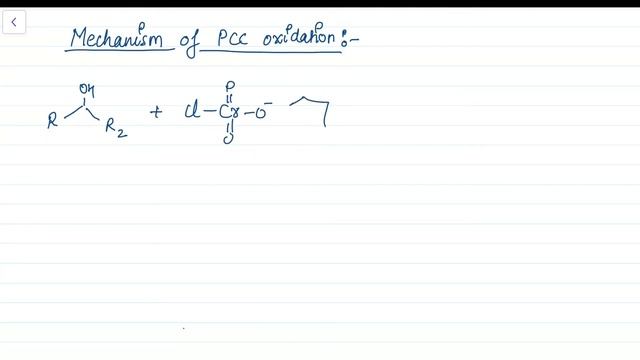 Mechanism of PCC oxidation:-
OH
R R2 + Cl-Cr-O-
O